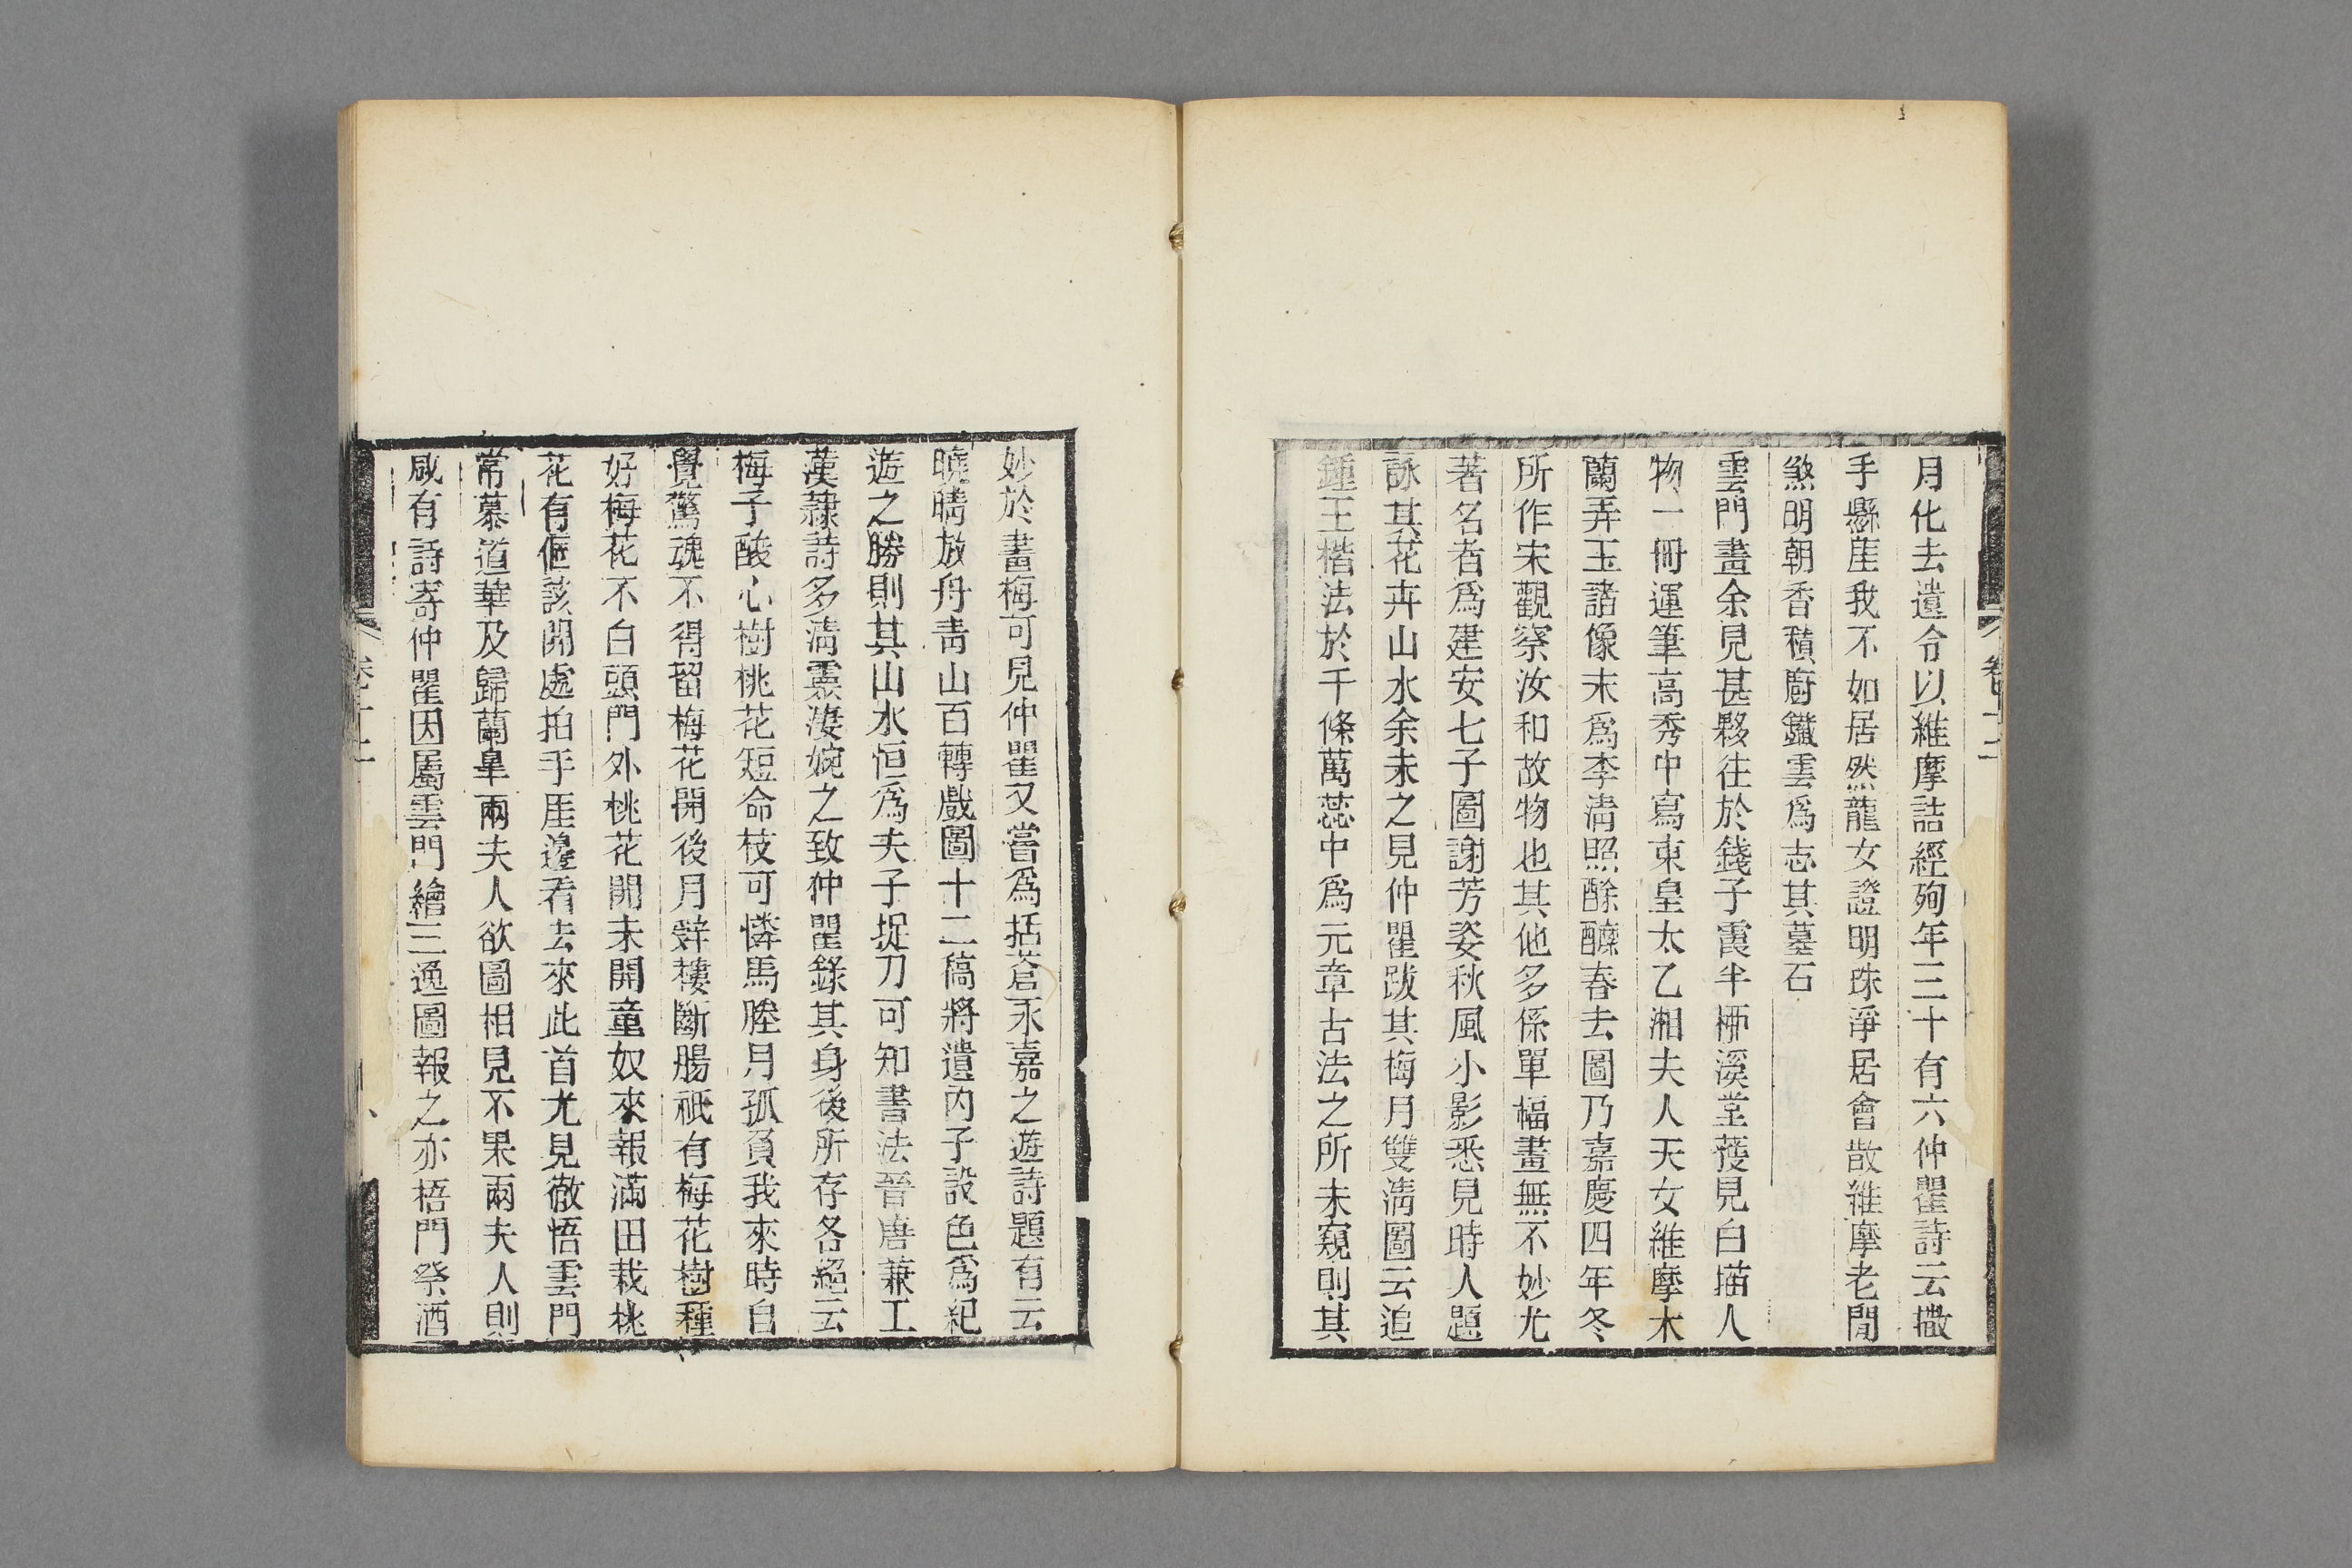 月化去遺令以維摩詰經殉年三十有六仲瞿詩云撒
手懸崖我不如居然龍女證明珠淨居會散維摩老閒
煞明朝香積廚鐵雲爲志其墓石
雲門畫余見甚夥往於錢子霞半栁溪堂獲見白描人
物一冊運筆高秀中寫東皇太乙湘夫人天女維摩木
蘭弄玉諸像末爲李清照酴醾春去圖乃嘉慶四年冬
所作宋觀察汝和故物也其他多係單幅畫無不妙尤
著名者爲建安七子圖謝芳姿秋風小影悉見時人題
詠其花卉山水余未之見仲瞿跋其梅月雙淸圖云追
鍾王楷法於千條萬蕊中爲元章古法之所未窺則其
妙於畫梅可見仲瞿又嘗爲括蒼永嘉之遊詩題有云
曉晴放舟靑山百轉戲圖十二稿將遺內子設色爲紀
遊之勝則其山水恒爲夫子捉刀可知書法晉唐兼工
漢隸詩多淸靈淒婉之致仲瞿錄其身後所存各絕云
梅子酸心樹桃花短命枝可憐馬塍月孤負我來時自
覺驚魂不得留梅花開後月辤樓斷腸祇有梅花樹種
好梅花不白頭門外桃花開未開童奴來報滿田栽桃
花有傴該開處拍手厓邊看去來此首尤見徹悟雲門
常慕道華及歸蘭臯兩夫人欲圖相見不果兩夫人則
咸有詩寄仲瞿因屬雲門繪三逸圖報之亦梧門祭酒